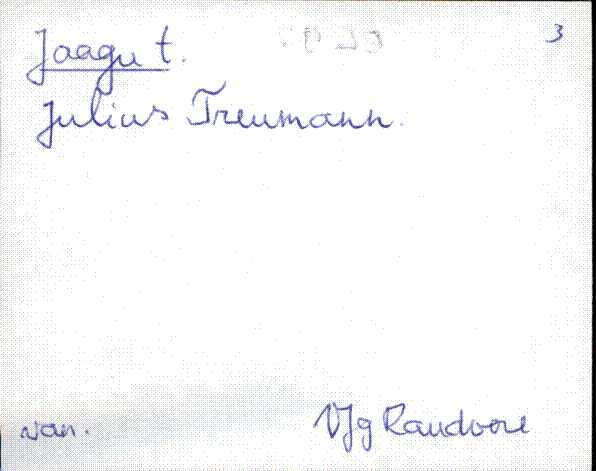 3
Jaagu t.
Julius Treumann.
van.
VJg Raudvere